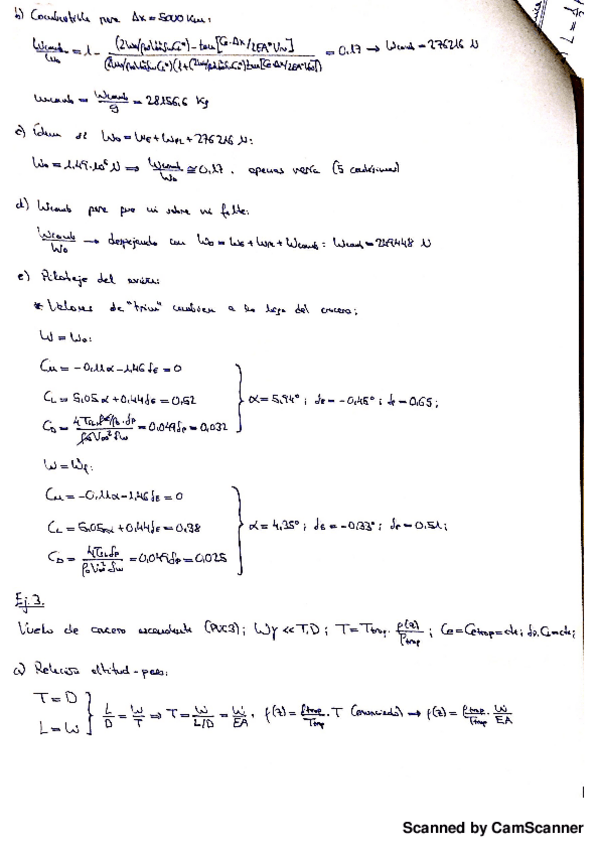 b) Combustible para Δx = 5000 km:
Wcomb/W₀ = 1 - = 0,17 → Wcomb = 276216 N
mcomb = Wcomb/g = 28156,6 Kg
c) Ídem si W₀ = WE + WPL + 276216 N:
W₀ = 1,49·10⁶ N ⇒ Wcomb/W₀ ≅ 0,17. apenas varía
d) Wcomb para que ni sobre ni falte:
Wcomb/W₀ → despejando con W₀ = WE + WPL + Wcomb: Wcomb =
e) Pilotaje del avión:
* Valores de "trim" cambian a lo largo del crucero;
W = W₀:
CM = -0,11α - 1,46δE = 0
CL = 5,05α + 0,44δE = 0,52
CD = = 0,049δP = 0,032
α = 5,94°; δE = -0,45°; δP = 0,65;
W = WF:
CM = -0,11α - 1,46δE = 0
CL = 5,05α + 0,44δE = 0,38
CD = = 0,049δP = 0,025
α = 4,35°; δE = -0,33°; δP = 0,51;
Ej 3.
Vuelo de crucero ascendente (PVC3); Wγ << T, D; T = Ttrop · ρ(z)/ρtrop; CE = CEtrop = cte;
a) Relación altitud-peso:
T = D
L = W
L/D = W/T ⇒ T = W/(L/D) = W/EA, ρ(z) = ρtrop/Ttrop · T (enunciado) → ρ(z) = ρtrop/Ttrop · W/EA
Scanned by CamScanner